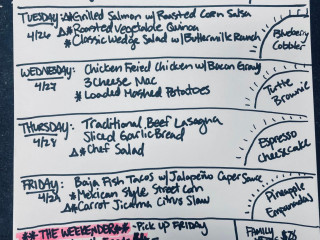 TUESDAY: △*Grilled Salmon w/Roasted Corn Salsa
4/26 △*Roasted Vegetable Quinoa
*Classic Wedge Salad w/Buttermilk Ranch
Blueberry
Cobbler
WEDNESDAY: Chicken Fried Chicken w/Bacon Gravy
4/27 3 Cheese Mac
*Loaded Mashed Potatoes
Turtle
Brownie
THURSDAY: Traditional Beef Lasagna
4/28 Sliced Garlic Bread
△*Chef Salad
Espresso
Cheesecake
FRIDAY: Baja Fish Tacos w/Jalapeño Caper Sauce
4/29 *Mexican Style Street Corn
△*Carrot Jicama Citrus Slaw
Pineapple
Empanadas
**THE WEEKENDER** - Pick up FRIDAY
FAMILY